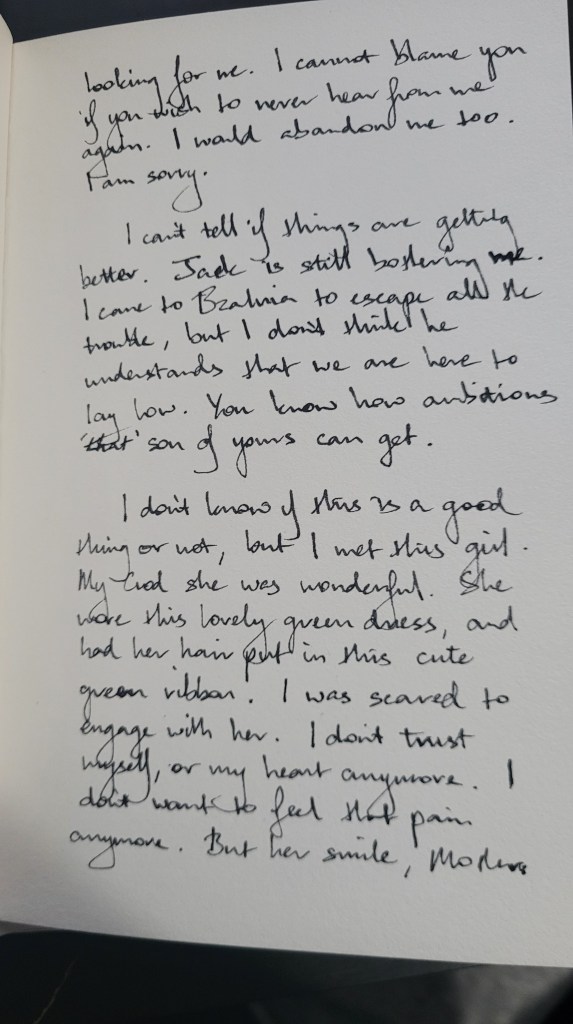 looking for me. I cannot blame you
if you wish to never hear from me
again. I would abandon me too.
I am sorry.
I can't tell if things are getting
better. Jack is still bothering me.
I came to to escape all the
trouble, but I don't think he
understands that we are here to
lay low. You know how ambitious
'that' son of yours can get.
I don't know if this is a good
thing or not, but I met this girl.
My God she was wonderful. She
wore this lovely green dress, and
had her hair put in this cute
green ribbon. I was scared to
engage with her. I don't trust
myself, or my heart anymore. I
don't want to feel that pain
anymore. But her smile, Mother